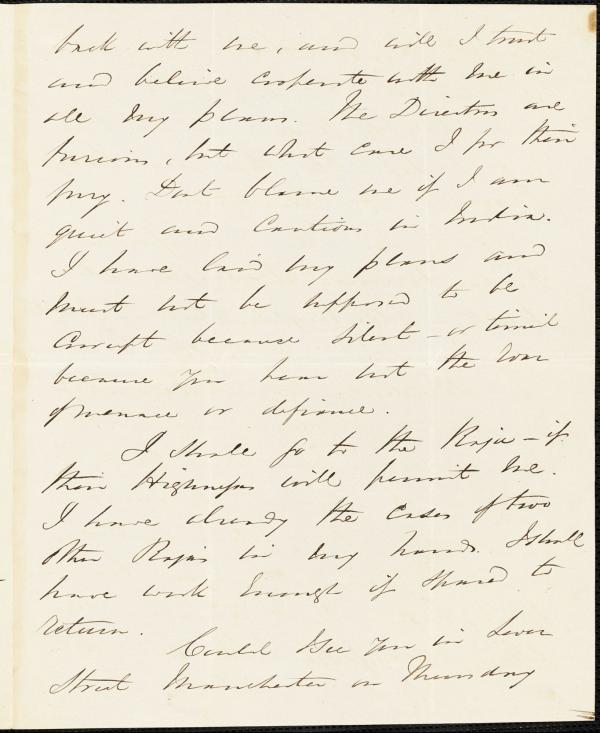 back with me, and will I trust
and believe cooperate with me in
all my plans. The Directors are
furious, but what care I for their
fury. Don't blame me if I am
quiet and cautious in India.
I have laid my plans and
must not be supposed to be
corrupt because silent – or timid
because you hear not the roar
of menace or defiance.
I shall go to the Raja – if
their Highnesses will permit me.
I have already the cases of two
other Rajas in my hands. I shall
have work enough if spared to
return.
Could I see you in Lever
Street Manchester on Thursday